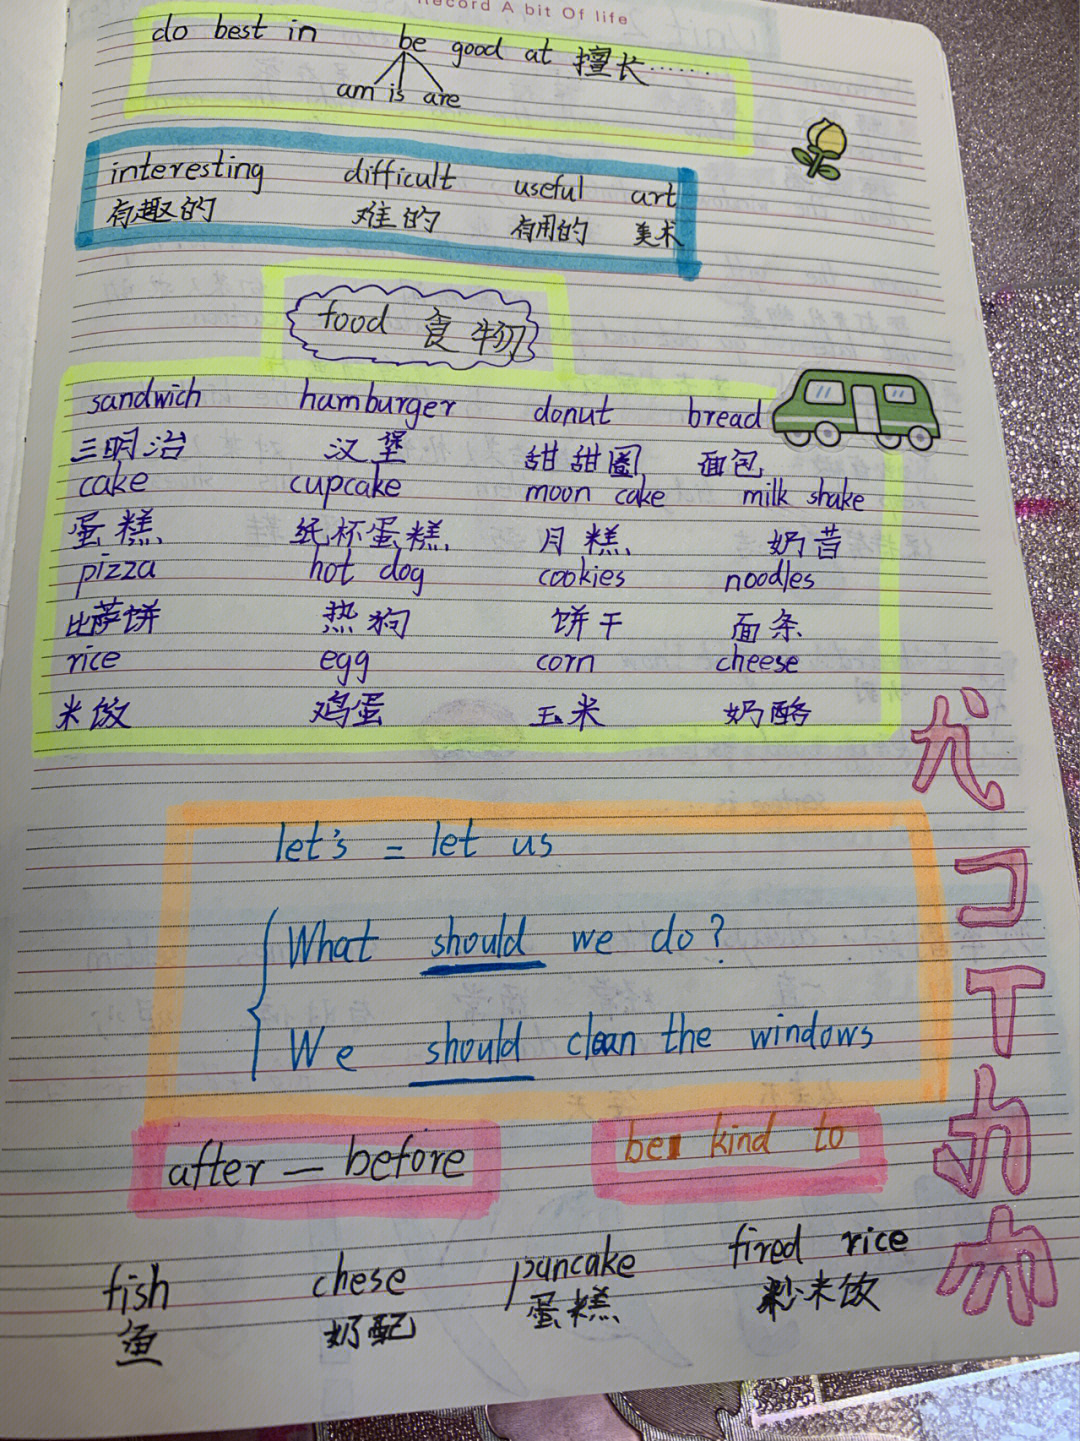 Record A bit Of life
do best in be good at 擅长……
am is are
interesting difficult useful art
有趣的 难的 有用的 美术
food 食物
sandwich hamburger donut bread
三明治 汉堡 甜甜圈 面包
cake cupcake moon cake milk shake
蛋糕 纸杯蛋糕 月糕 奶昔
pizza hot dog cookies noodles
比萨饼 热狗 饼干 面条
rice egg corn cheese
米饭 鸡蛋 玉米 奶酪
let's = let us
What should we do?
We should clean the windows
after — before be kind to
fish chese pancake fired rice
鱼 奶配 蛋糕 米饭